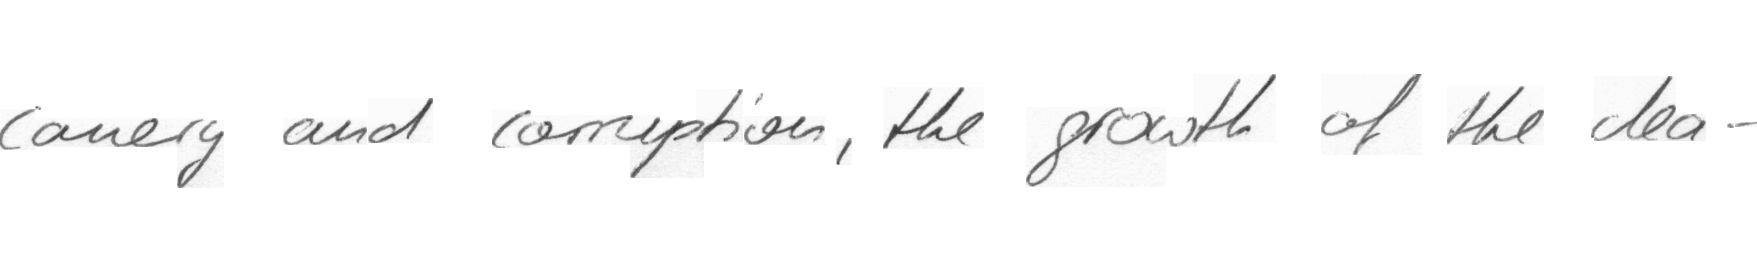 canery and corruption, the growth of the dea-